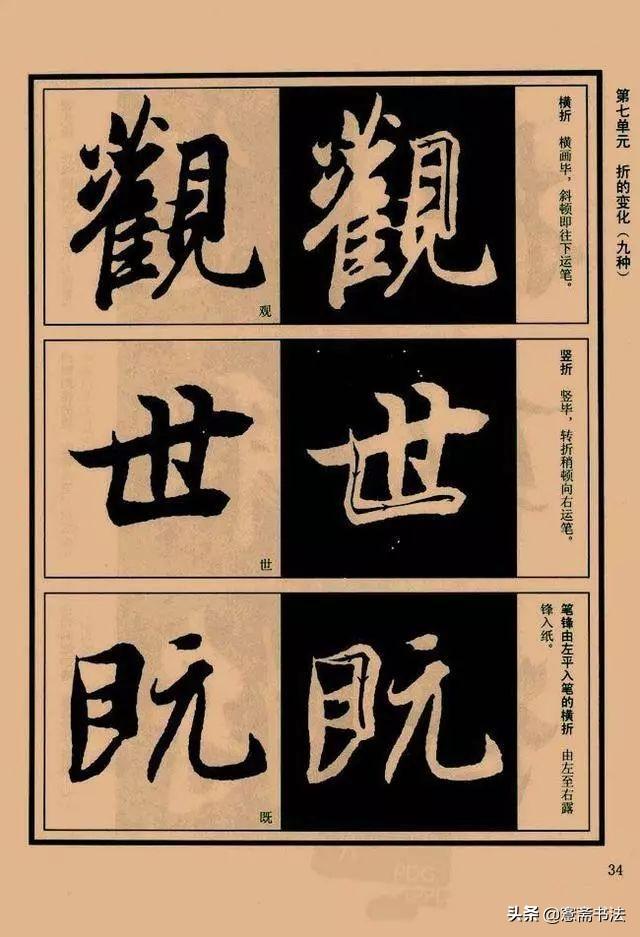 第七单元 折的变化（九种）
横折 横画毕，斜顿即往下运笔。
觀
觀
观
竖折 竖毕，转折稍顿向右运笔。
世
世
世
笔锋由左平入笔的横折 由左至右露
锋入纸。
既
既
既
34
头条 @寒斋书法